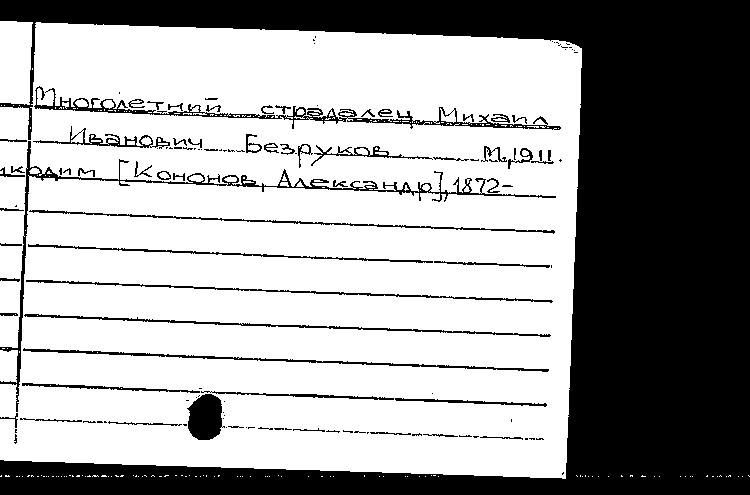 Многолетний страдалец Михаил
Иванович Безруков. М., 1911.
икодим [Кононов, Александр], 1872-